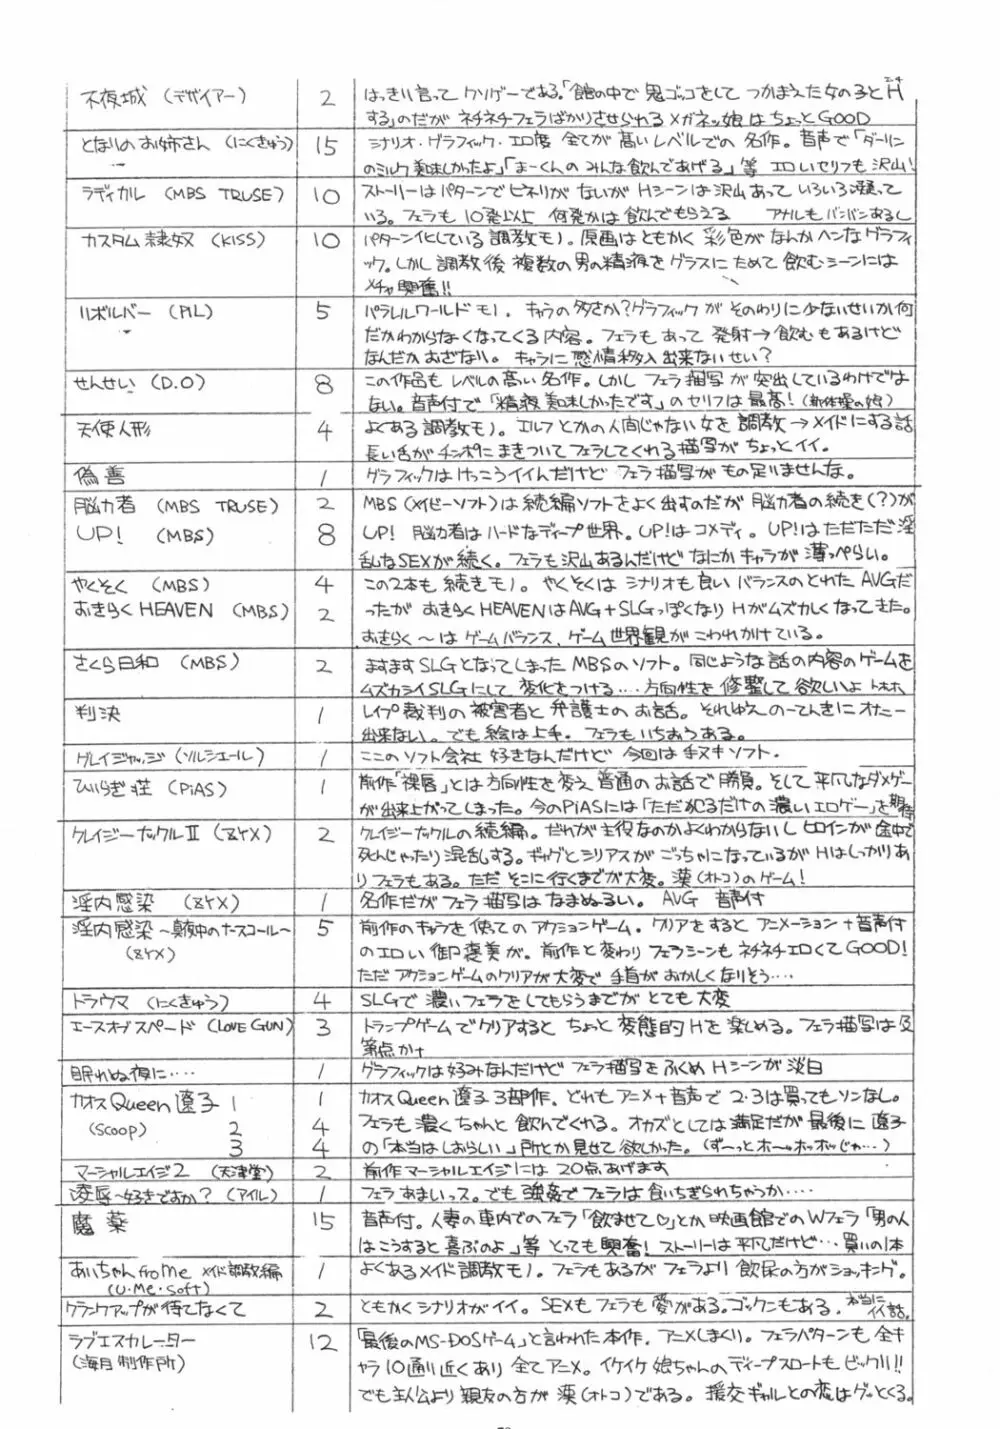 不夜城 (デザイアー) 2 はっきり言ってクソゲーである。「館の中で鬼ゴッコをしてつかまえた女の子とH
する」のだがネチネチフェラばかりさせられる メガネッ娘はちょっとGOOD
となりのお姉さん (にくきゅう) 15 シナリオ・グラフィック・エロ度 全てが高いレベルでの名作。音声で「ダーリン
のミルク美味しかったよ」「まーくんのみんな飲んであげる」等 エロいセリフも沢山!
ラディカル (MBS TRUSE) 10 ストーリーはパターンでヒネリがないがHシーンは沢山あっていろいろ凝って
いる。フェラも10発以上 何発かは飲んでもらえる アナルもバンバンあるし
カスタム隷奴 (KISS) 10 パターン化している調教モノ。原画はともかく彩色がなんかヘンなグラフィ
ック。しかし調教後複数の男の精液をグラスにためて飲むシーンには
メチャ興奮!!
リボルバー (PIL) 5 パラレルワールドモノ。キャラの多さか?グラフィックがそのわりに少ないせいか何
だかわからなくなってくる内容。フェラもあって発射→飲むもあるけど
なんだかおざなり。キャラに感情移入出来ないせい?
せんせい (D.O) 8 この作品もレベルの高い名作。しかしフェラ描写が突出しているわけでは
ない。音声付で「精液美味しかったです」のセリフは最高!(新体操の娘)
天使人形 4 よくある調教モノ。エルフとかの人間じゃない女を調教→メイドにする話
長い舌がチンポにまきついてフェラしてくれる描写がちょっとイイ。
偽善 1 グラフィックはけっこうイイんだけどフェラ描写がもの足りませんな。
脳力者 (MBS TRUSE) 2 MBS(メイビーソフト)は続編ソフトをよく出すのだが脳力者の続き(?)が
UP! (MBS) 8 UP! 脳力者はハードなディープ世界。UP!はコメディ。UP!はただただ淫
乱なSEXが続く。フェラも沢山あるんだけどなにかキャラが薄っぺらい。
やくそく (MBS) 4 この2本も続きモノ。やくそくはシナリオも良いバランスのとれたAVGだ
おきらくHEAVEN (MBS) 2 ったがおきらくHEAVENはAVG+SLGっぽくなりHがムズカしくなってきた。
おきらく〜はゲームバランス、ゲーム世界観がこわれかけている。
さくら日和 (MBS) 2 ますますSLGとなってしまったMBSのソフト。同じような話の内容のゲームを
ムズカシイSLGにして変化をつける‥‥方向性を修整して欲しいよ トホホ
判決 1 レイプ裁判の被害者と弁護士のお話。それゆえのーてんきにオナニー
出来ない。でも絵は上手。フェラもいちおうある。
グレイジャッジ (ソルシエール) 1 ここのソフト会社好きなんだけど今回は手ヌキソフト.
ひいらぎ荘 (PiAS) 1 前作「裸唇」とは方向性を変え普通のお話で勝負。そして平凡なダメゲー
が出来上がってしまった。今のPiASには「ただ犯るだけの濃いエロゲー」を期待
クレイジーナックルⅡ (ZYX) 2 クレイジーナックルの続編。だれが主役なのかよくわからないしヒロインが途中で
死んじゃったり混乱する。ギャグとシリアスがごっちゃになっているがHはしっかりあ
りフェラもある。ただそこに行くまでが大変。漢(オトコ)のゲーム!
淫内感染 (ZYX) 1 名作だがフェラ描写はなまぬるい。AVG 音声付
淫内感染〜真夜中のナースコール〜 5 前作のキャラを使ってのアクションゲーム。クリアをするとアニメーション+音声付
(ZYX) のエロい御褒美が。前作と変わりフェラシーンもネチネチエロくてGOOD!
ただアクションゲームのクリアが大変で手首がおかしくなりそう‥‥
トラウマ (にくきゅう) 4 SLGで濃いフェラをしてもらうまでがとても大変
エースオブスペード (LOVE GUN) 3 トランプゲームでクリアするとちょっと変態的Hを楽しめる。フェラ描写は及
第点かナ
眠れぬ夜に‥‥ 1 グラフィックは好みなんだけどフェラ描写をふくめHシーンが淡白
カオスQueen遼子 1 1 カオスQueen遼子3部作。どれもアニメ+音声で2・3は買ってもソンなし。
(SCOOP) 2 4 フェラも濃くちゃんと飲んでくれる。オカズとしては満足だが最後に遼子
3 4 の「本当はしおらしい」所とか見せて欲しかった。(ず〜っとホ〜ッホッホッじゃ‥‥)
マーシャルエイジ2 (天津堂) 2 前作マーシャルエイジには20点あげます
凌辱〜好きですか? (アイル) 1 フェラあまいっス。でも強姦でフェラは食いちぎられちゃうか‥‥
魔薬 15 音声付。人妻の車内でのフェラ「飲ませて♡」とか映画館でのWフェラ「男の人
はこうすると喜ぶのよ」等 とっても興奮!ストーリーは平凡だけど‥‥買いの1本
あいちゃん froMe メイド調教編 1 よくあるメイド調教モノ。フェラもあるがフェラより飲尿の方がショッキング。
(U・Me・Soft)
クランクアップが待てなくて 2 ともかくシナリオがイイ。SEXもフェラも愛がある。ゴックンもある。本当にイイ話。
ラブエスカレーター 12 「最後のMS-DOSゲーム」と言われた本作。アニメしまくり。フェラパターンも全キ
(海月制作所) ャラ10通り近くあり全てアニメ。イケイケ娘ちゃんのディープスロートもビックリ!!
でも主人公より親友の方が漢(オトコ)である。援交ギャルとの恋はグッとくる。